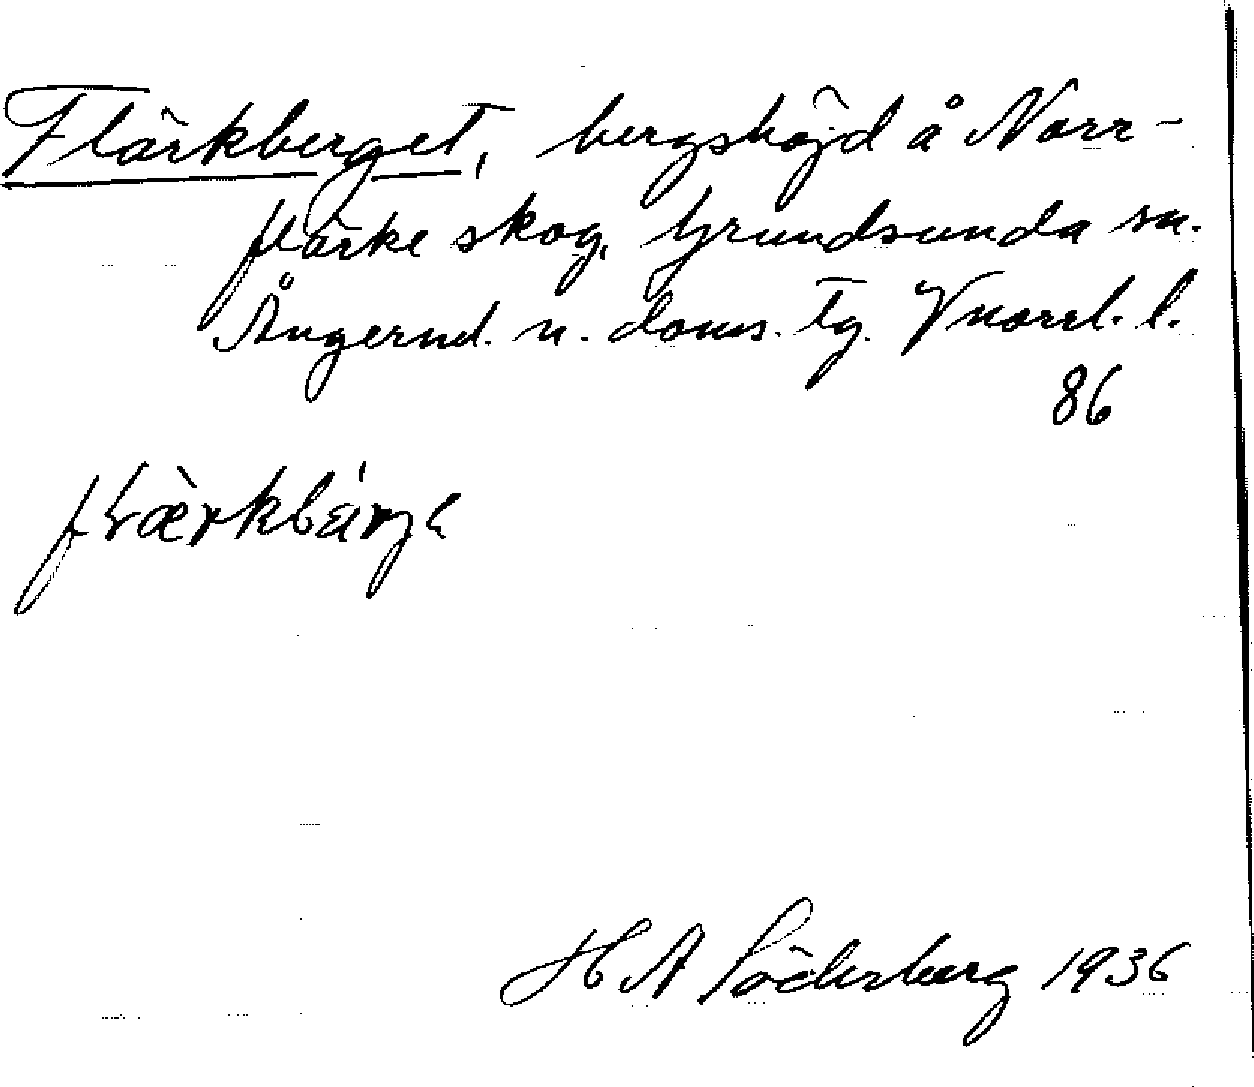 Flärkberget, bergshöjd å Norr-
flärke skog, Grundsunda sn.
Ångermd. n. doms. tg. Vnorrl. l.
86
H A Söderberg 1936